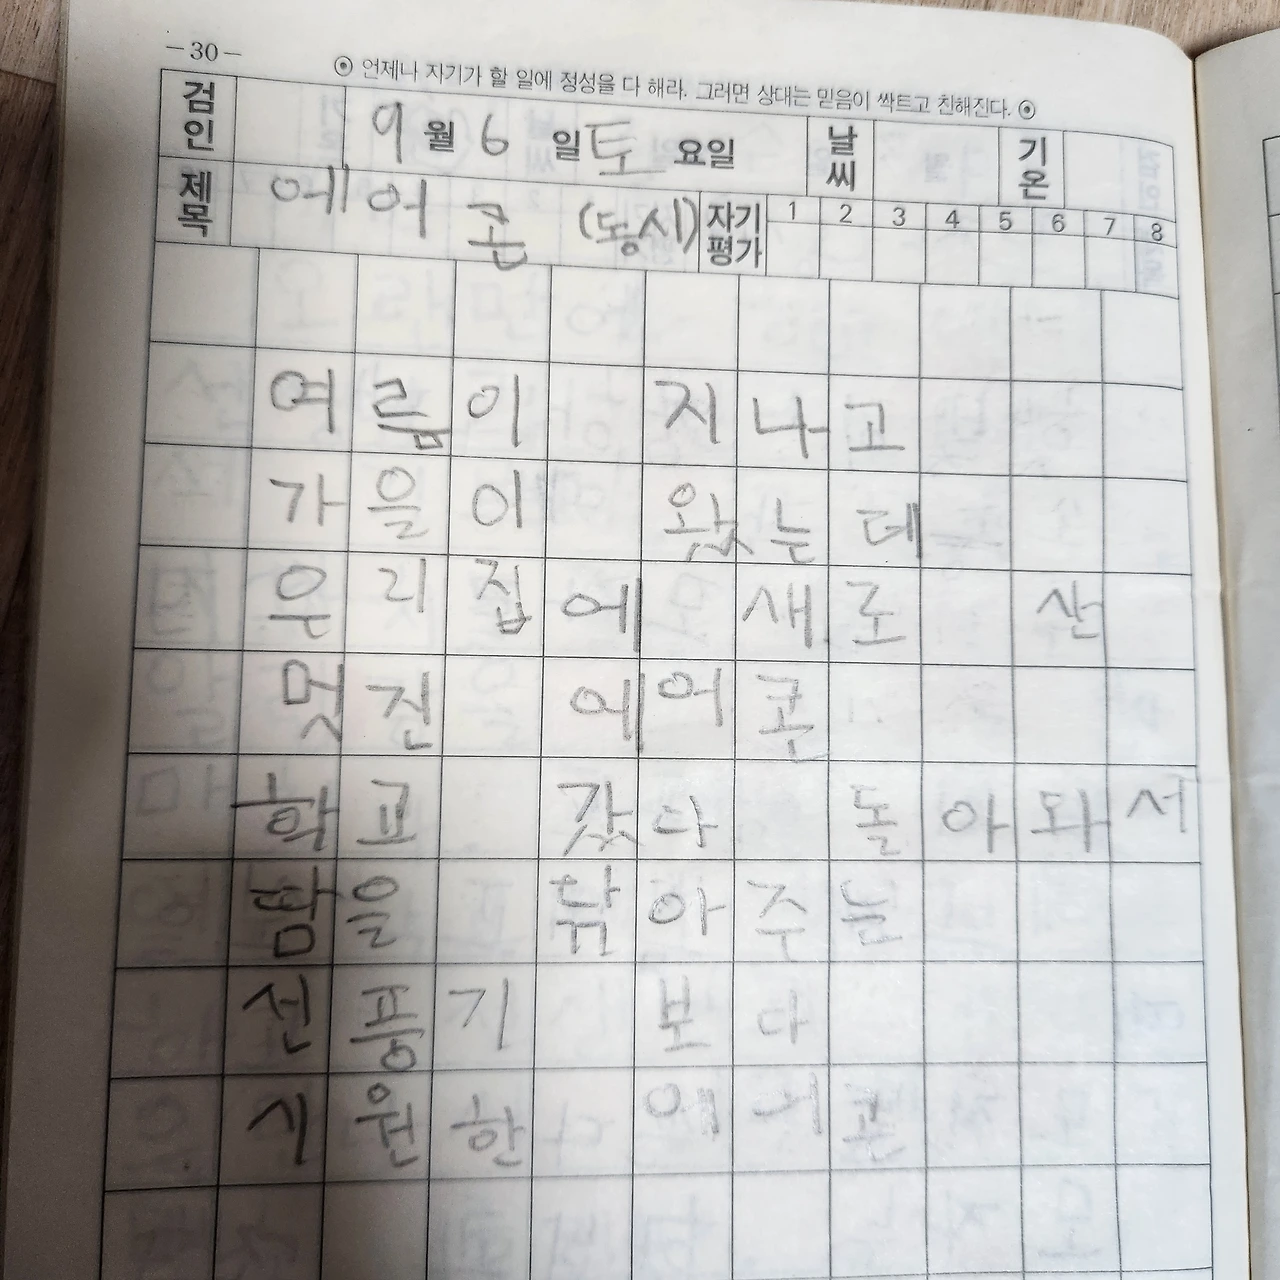 -30-
⊙ 언제나 자기가 할 일에 정성을 다 해라. 그러면 상대는 믿음이 싹트고 친해진다. ⊙
검인 9월 6일 토요일 날씨 기온
제목 에어콘 (동시) 자기평가 1 2 3 4 5 6 7 8
여름이 지나고
가을이 왔는데
우리집에 새로 산
멋진 에어콘
학교 갔다 돌아와서
땀을 닦아주는
선풍기 보다
시원한 에어콘